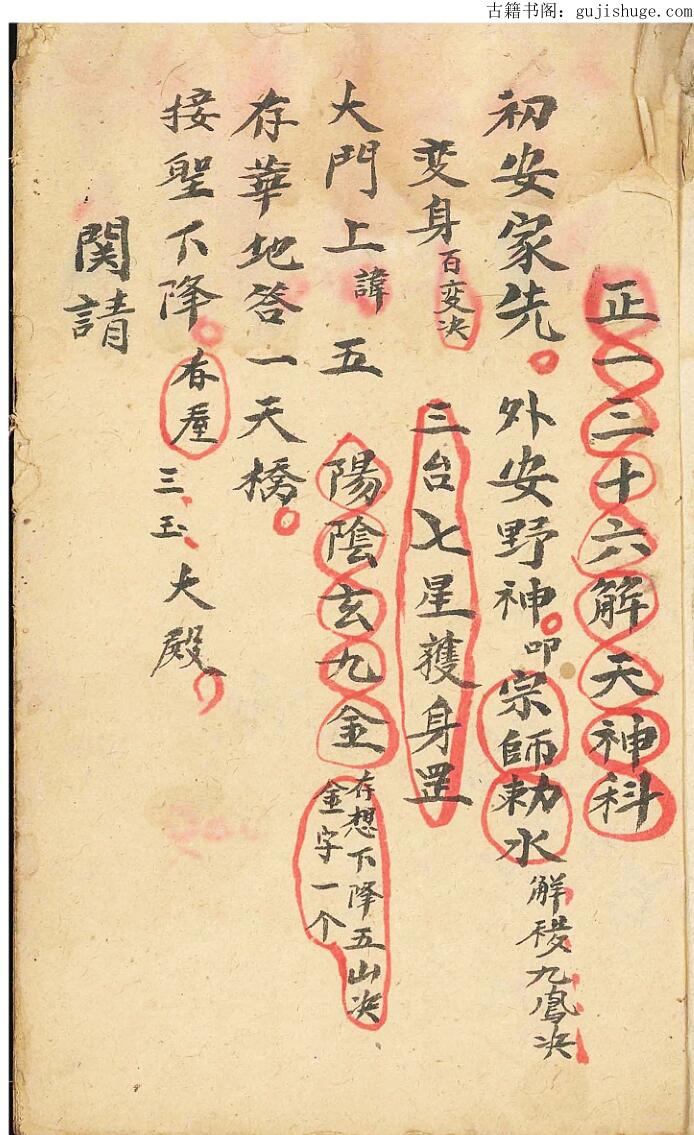 古籍书阁：gujishuge.com
正一三十六解天神科
初安家先。外安野神。叩宗師勅水 解穢九鳳决
変身 百变决 三台七星獲身罡
大門上 諱 五 陽陰玄九金 存想下降五山决 金字一个
存華地咨一天橋。
接聖下降。存 三玉大殿
関請